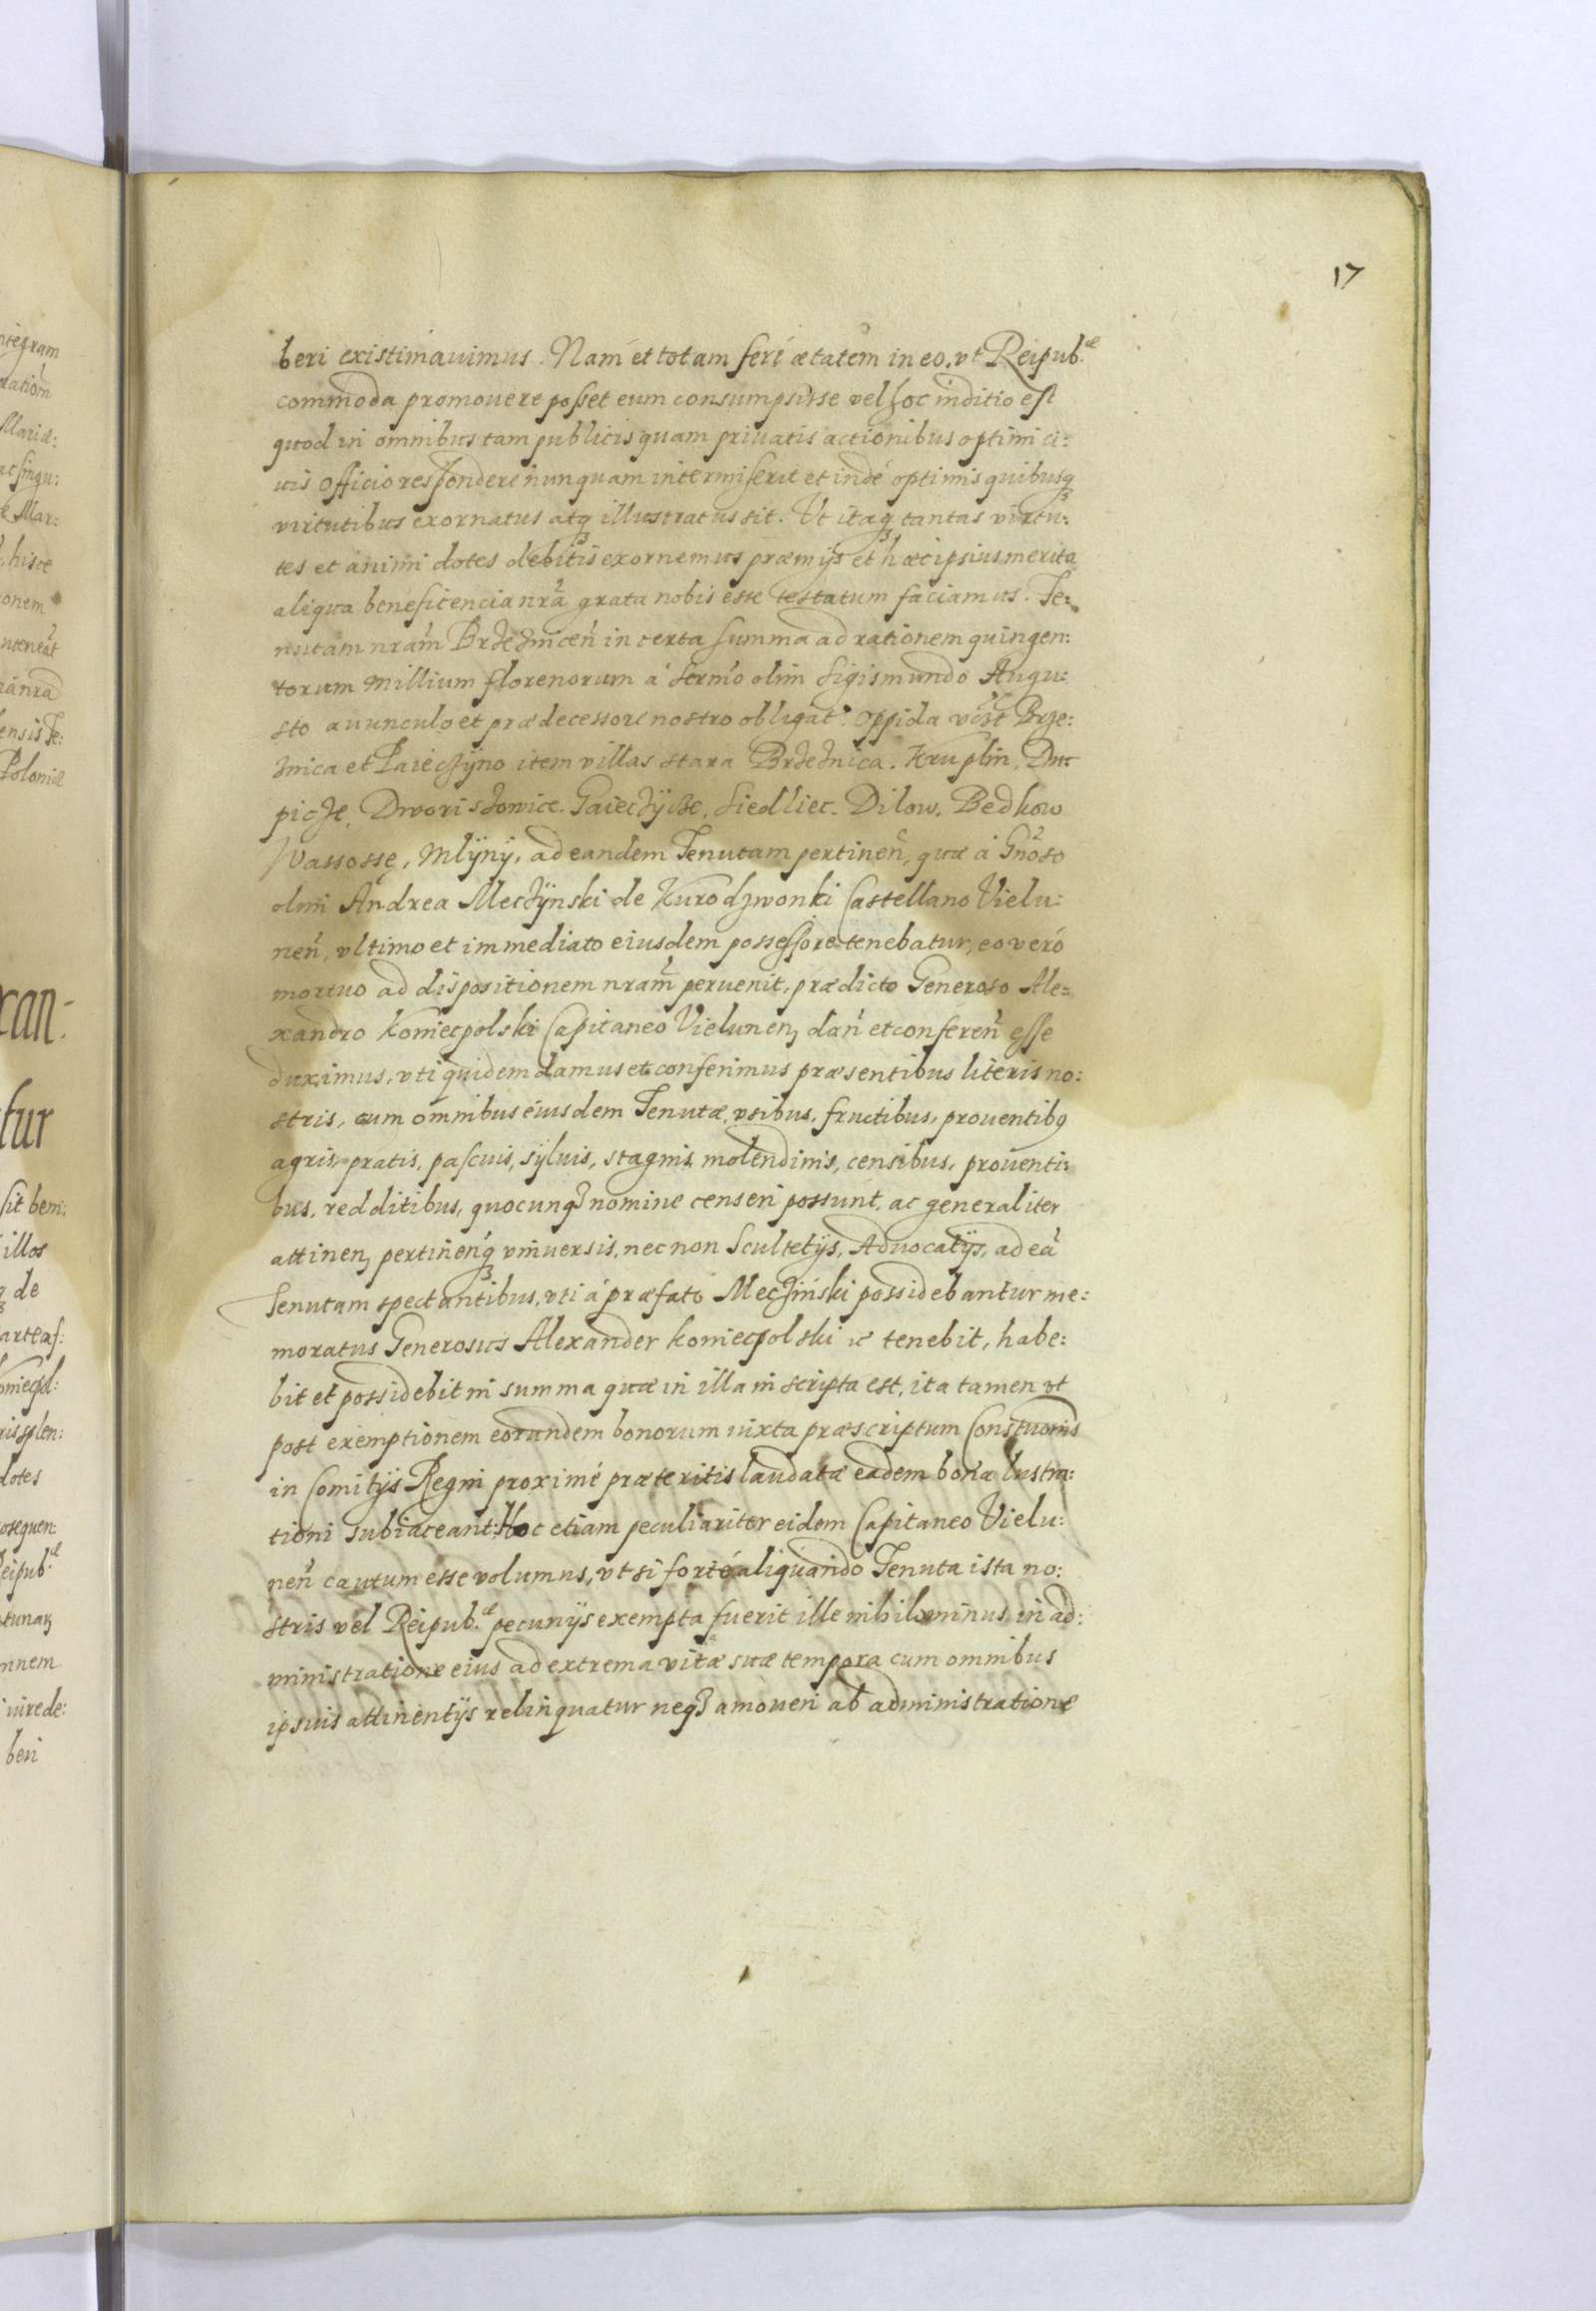 17
beri existimauimus. Nam et totam feré ætatem in eo, vt Reipub.æ
commoda promouere posset eum consumpsisse vel hoc inditio est
quod in omnibus tam publicis quam priuatis actionibus optimi ci:
uis officio respondere nunquam intermiserit et indé optimis quibusq3
virtutibus exornatus atq3 illustratus sit. Vt itaq3 tantas virtu:
tes et animi dotes debitis exornemus præmijs et hæc ipsius merita
aliqua beneficencia nrã grata nobis esse testatum faciamus. Te:
nutam nram̃ Brzezniceñ in certa summa ad rationem quingen:
torum millium florenorum á Sermo olim Sigismundo Augu:
sto auunculo et prædecessore nostro obligat. Oppida vczt Brze:
znica et Paieczyno item villas stara Brzeznica. Kruplin,
picze, Dworiszowice. Gaieczycze, Siedliec. Dilow. Bedkow
Wassosse, Mlyny, ad eandem Tenutam pertineñ, quæ á Gnoso
olim Andrea Meczynski de Kurodzwonki Castellano Vielu:
neñ, vltimo et immediato eiusdem possessore tenebatur, eo veró
mortuo ad dispositionem nram̃ peruenit, prædicto Generoso Ale:
xandro Koniecpolski Capitaneo Vielunen, dañ et confereñ esse
duximus, vti quidem damus et conferimus præsentibus literis no:
stris, cum omnibus eiusdem Tenutæ, vsibus, fructibus, prouentibq
agris, pratis, pascuis, syluis, stagnis, molendinis, censibus, prouenti:
bus, redditibus, quocunq3 nomine censeri possunt, ac generaliter
attinen, pertineñq3 vniuersis, nec non Scultetijs, Aduocatijs, ad eã
Tenutam spectantibus, vti á præfato Meczinski possidebantur me:
moratus Generosus Alexander Koniecpolski tenebit, habe:
bit et possidebit in summa quæ in illa inscripta est, ita tamen vt
post exemptionem eorundem bonorum iuxta præscriptum Constuonis
in Comitijs Regni proximé præteritis laudatæ eadem bona lustra:
tioni subiaceant: Hoc etiam peculiariter eidem Capitaneo Vielu:
neñ cautum esse volumus, vt si forté aliquando Tenuta ista no:
stris vel Reipub.æ pecunijs exempta fuerit ille nihilominus in ad:
ministratione eius ad extrema vitæ suæ tempora cum omnibus
ipsius attinentijs relinquatur neq3 amoueri ab administratione
ntegram
Mariæ:
ac singu:
Mar:
hisce
onem
ensis Te:
Poloniæ
xan:
tur
sit beni:
illos
de
Koniecpol:
splen:
dotes
osequen:
Reipub.æ
mnem
iure de:
beri